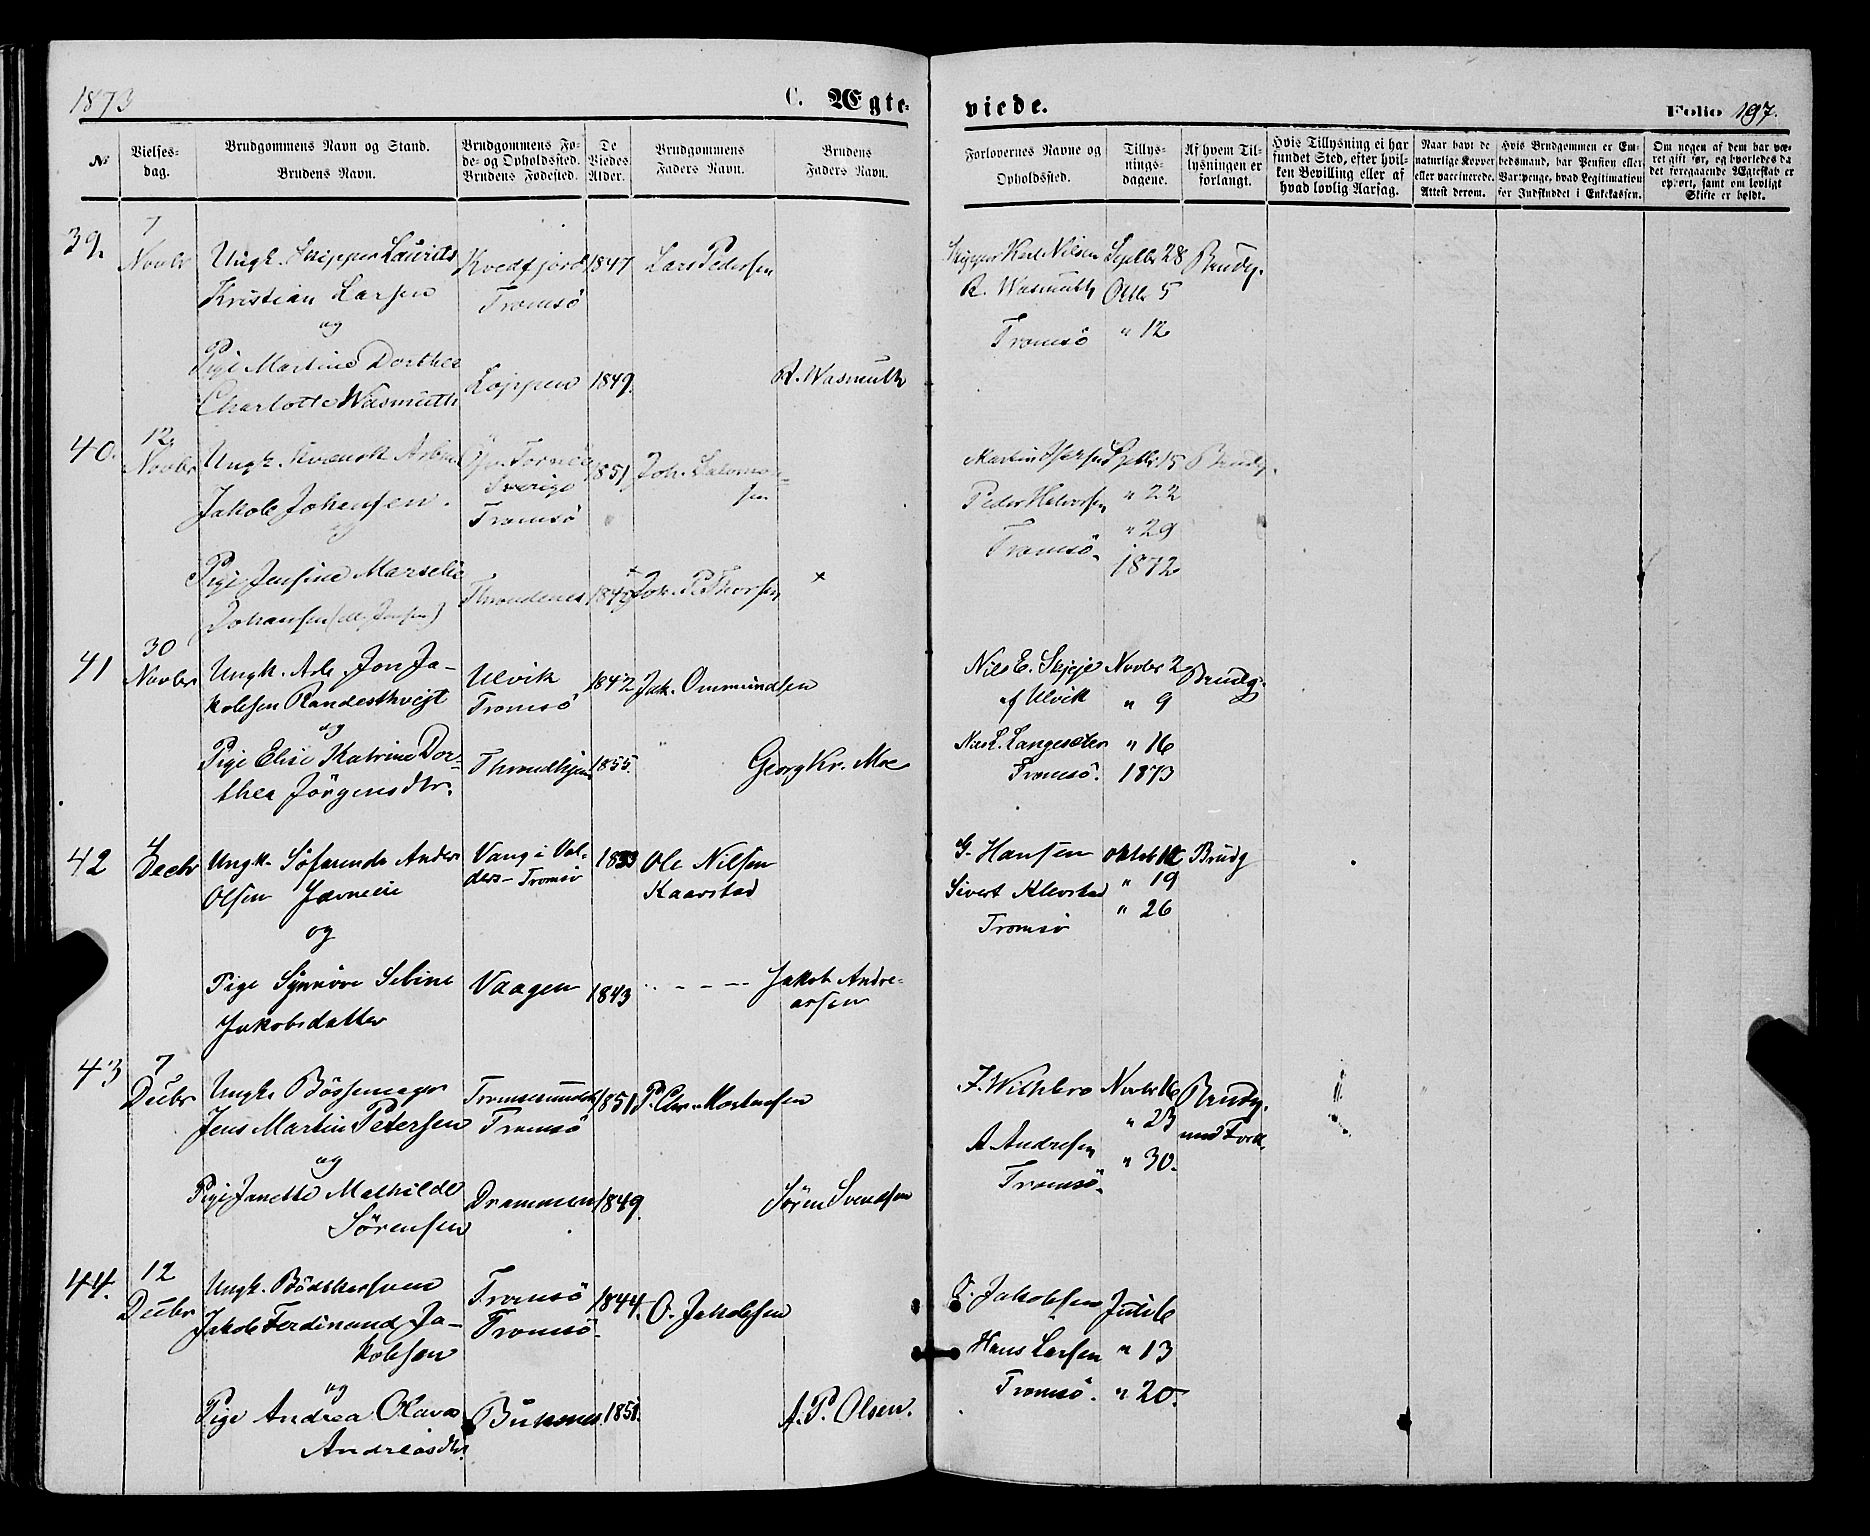 1873
C. Ægte-
viede.
Folio 197.
№
Vielses-
dag.
Brudgommens Navn og Stand.
Brudens Navn.
Brudgommens Fø-
de- og Opholdssted.
Brudens Fødested.
De
Viedes
Alder.
Brudgommens
Faders Navn.
Brudens
Faders Navn.
Forlovernes Navne og
Opholdssted.
Tillys-
nings-
dagene.
Af hvem Til-
lysningen er
forlangt.
Hvis Tillysning ei har
fundet Sted, efter hvil-
ken Bevilling eller af
hvad lovlig Aarsag.
Naar havt de
naturlige Kopper
eller vaccinerede.
Attest derom.
Hvis Brudgommen er Em-
bedsmand, har Pension eller
Vartpenge, hvad Legitimation
for Indskuddet i Enkekassen.
Om nogen af dem har væ-
ret gift før, og hvorledes da
det foregaaende Ægteskab er
ophørt, samt om lovligt
Skifte er holdt.
39.
7
Novbr
Ungk. Skipper Laurits
Kristian Larsen
og
Pige Martine Dorthea
Charlotte Wasmuth
Kvedfjord
Tromsö
Loppen
1847
1849.
Lars Pedersen
R. Wasmuth
Skipper Karl Nilsen
R. Wasmuth
Tromsö
Septbr 28
Octbr 5
" 12
Brudg.
40.
12
Novbr
Ungk. Kvænsk Arb.
Jakob Johansen.
og
Pige Jensine Marselie
Johansen
Öv. Torneå
Sverige
Tromsö
Throndenes
1851
Joh. Salomon-
sen
Joh. P. Thorsen
×
Martin
Peder Halvorsen
Tromsö.
Septbr 15
" 22
" 29
1872
Brudg.
41
30
Novbr
Ungk. Arb. Jon Ja-
kobsen Randesthvejt
og
Pige Elise Katrine Dor-
thea Jörgensdtr.
Ulvik
Tromsö
Throndhjem
1842
1855.
Jak. Ommundsen
Georg Kr. Moe
Nils E. Skjeje
af Ulvik
Nils L. Langesæter
Tromsö.
Novbr 2
" 9
" 16
1873
Brudg.
42
4
Decbr
Ungk. Söfarende Anders
Olsen
og
Pige Synnöve Sebine
Jakobsdatter
Vang i Val-
ders – Tromsö
Vaagen
1833
1843
Ole Nilsen
Kaarstad
- - - - -
Jakob Andre-
assen
G. Hansen
Sivert Klevstad
Tromsö
Oktob 12
" 19
" 26
Brudg
43
7
Decbr
Ungk. Bössemager
Jens Martin Petersen
og
Pige Janette Mathilde
Sörensen
Tromsesundet
Tromsö
Drammen
1851
1849.
P. Chr. Mortensen
Sören Svendsen
J. Wilhlero
A Andresen
Tromsö.
Novbr 16
" 23
" 30.
Brudg.
med Forl.
44.
12
Decbr
Ungk. Bödkersven
Jakob Ferdinand Ja-
kobsen
og
Pige Andrea Olava
Andreasdtr.
Tromsö
Tromsö.
Buksnes.
1844.
1851.
O. Jakobsen
A. P. Olsen.
O. Jakobsen
Hans Larsen
Tromsö.
Juli 6
" 13
" 20.